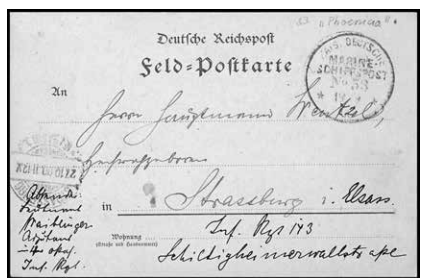 S.S. "Phoenicia".
Deutsche Reichspost
Feld=Postkarte
KAIS. DEUTSCHE
MARINE-
SCHIFFSPOST
No 53
An
Herrn Hauptmann Wentzel,
Hochwohlgeboren
in Strassburg i. Elsass.
Wohnung
(Straße und Hausnummer)
Inf. Rgt 143
Schiltigheimerwallstraße
Absend:
Leutnant
Adjutant
Inf. Rgt.